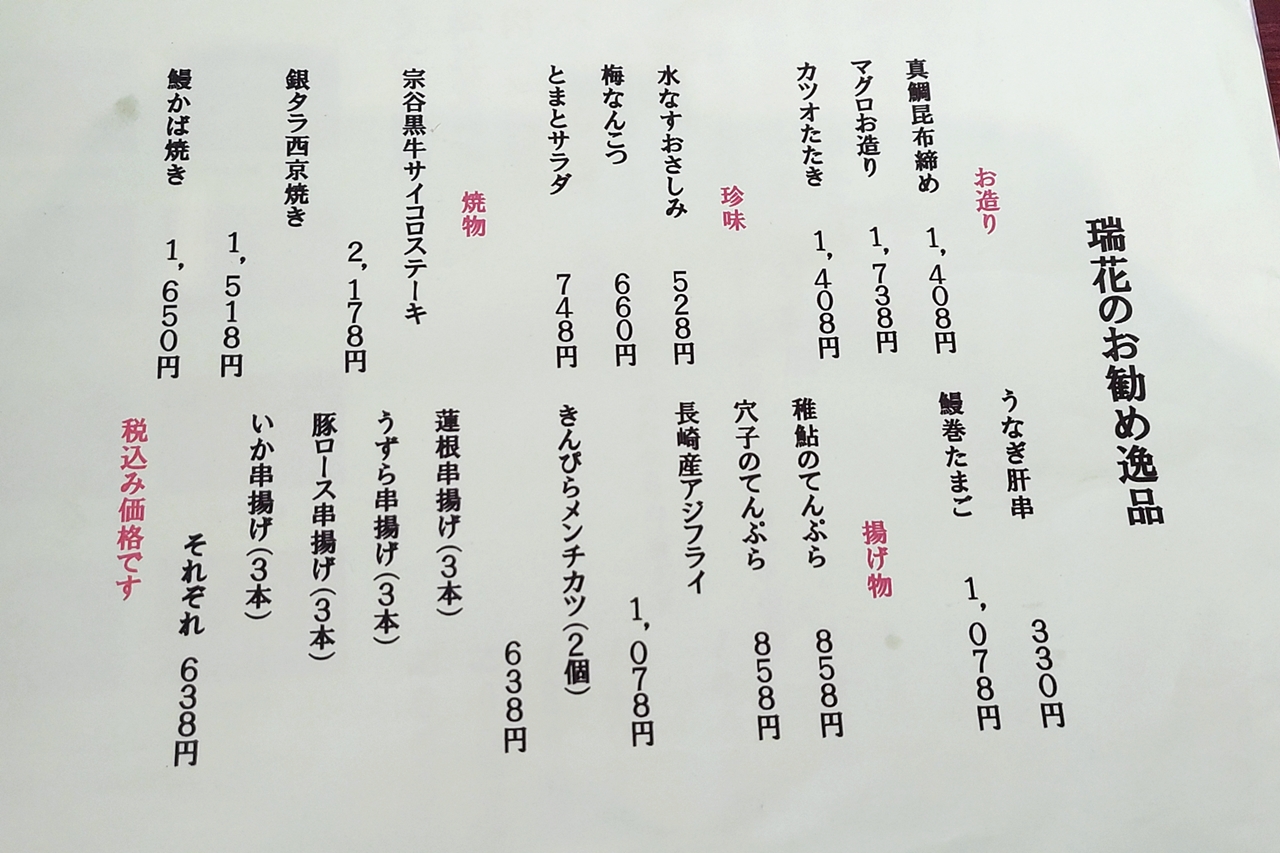 瑞花のお勧め逸品
お造り
真鯛昆布締め 1,408円
マグロお造り 1,738円
カツオたたき 1,408円
珍味
水なすおさしみ 528円
梅なんこつ 660円
とまとサラダ 748円
焼物
宗谷黒牛サイコロステーキ
2,178円
銀タラ西京焼き
1,518円
鰻かば焼き 1,650円
うなぎ肝串 330円
鰻巻たまご 1,078円
揚げ物
稚鮎のてんぷら 858円
穴子のてんぷら 858円
長崎産アジフライ
1,078円
きんぴらメンチカツ(2個)
638円
蓮根串揚げ(3本)
うずら串揚げ(3本)
豚ロース串揚げ(3本)
いか串揚げ(3本)
それぞれ 638円
税込み価格です